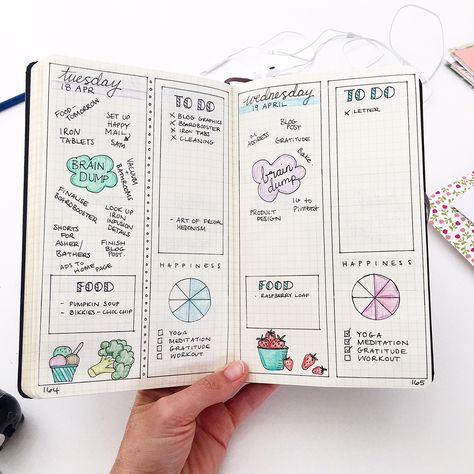 tuesday
18 APR
FOOD
TOMORROW
SET UP
HAPPY
MAIL
IRON
TABLETS
SAM
BRAIN
DUMP
VACUUM
+
BATHROOMS
FINALISE
BOARDBOOSTER
LOOK UP
IRON
INFUSION
DETAILS
SHORTS
FOR
ASHER/
BATHERS
FINISH
BLOG
POST.
ADS TO HOMEPAGE
FOOD
- PUMPKIN SOUP
- BIKKIES - CHOC CHIP
164
TO DO
X BLOG GRAPHICS
X BOARDBOOSTER
X IRON TABS
X CLEANING
- ART OF FRUGAL
HEDONISM
HAPPINESS
YOGA
MEDITATION
GRATITUDE
WORKOUT
wednesday
19 APRIL
ADDRESS
BLOG
POST
GRATITUDE
Bake
brain
dump
PRODUCT
DESIGN
IG to
Pinterest
FOOD
- RASPBERRY LOAF
TO DO
X LETTER
HAPPINESS
YOGA
MEDITATION
GRATITUDE
WORKOUT
165